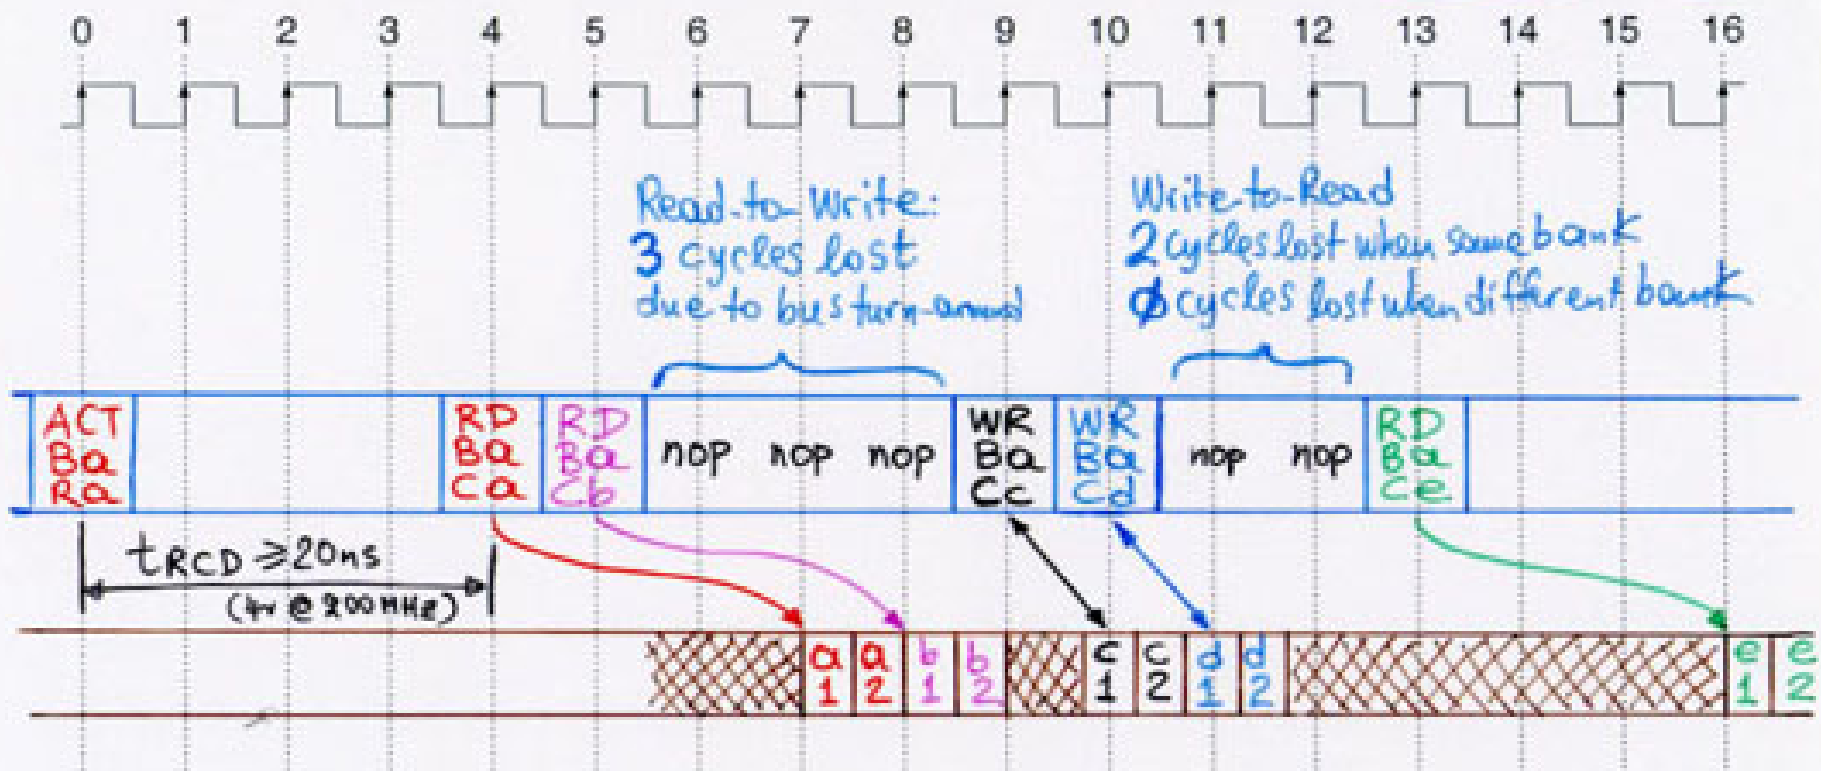 0 1 2 3 4 5 6 7 8 9 10 11 12 13 14 15 16
Read-to-Write:
3 cycles lost
due to bus turn-around
Write-to-Read
2 cycles lost when same bank
0 cycles lost when different bank
ACT
Ba
Ra
RD
Ba
Ca
RD
Ba
Cb
nop nop nop
WR
Ba
Cc
WR
Ba
Cd
nop nop
RD
Ba
Ce
tRCD ≥20ns
@ 200MHz)
a1 a2 b1 b2 c1 c2 d1 d2 e1 e2